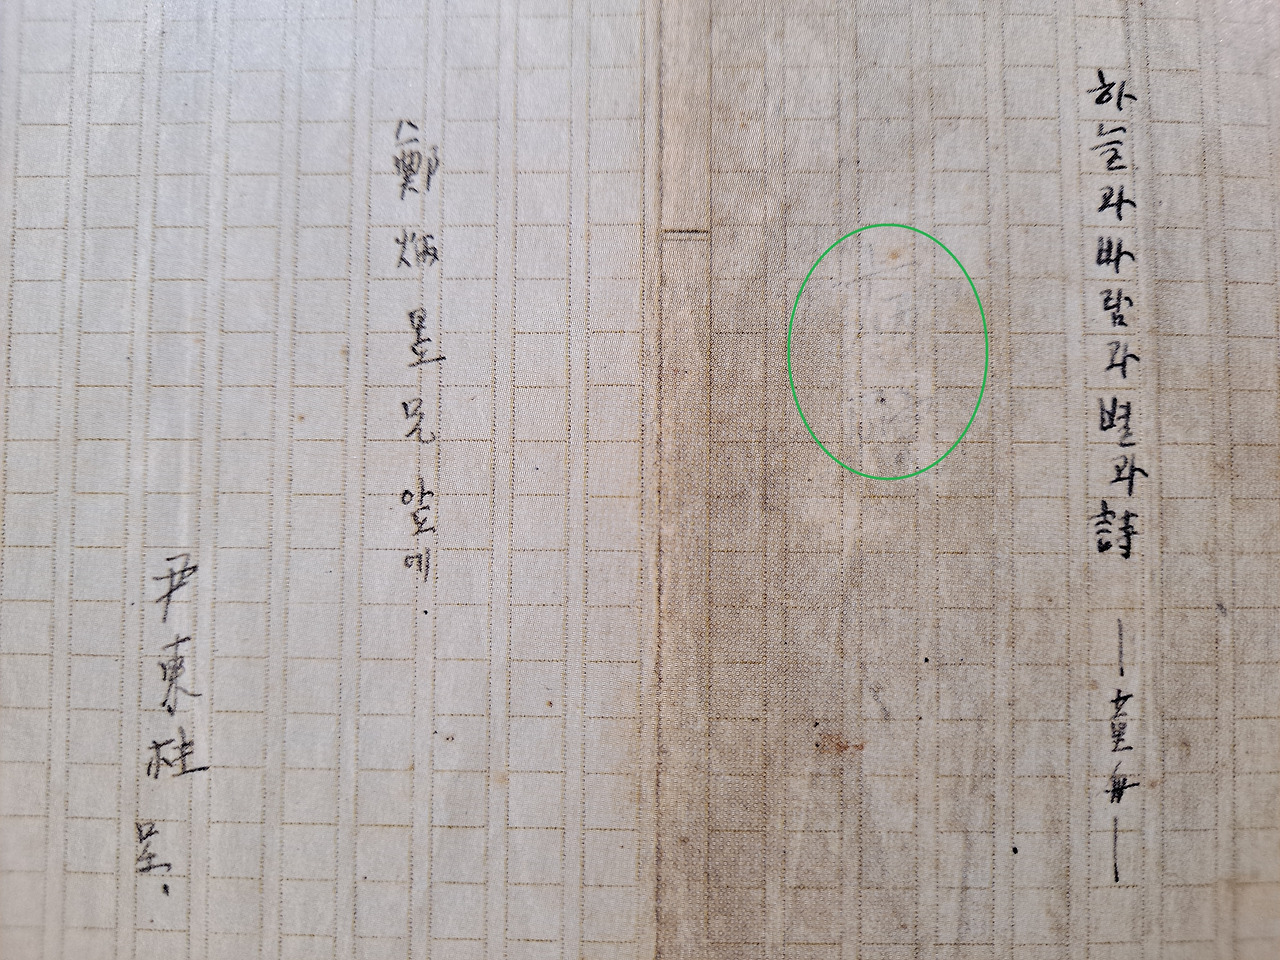 하늘과 바람과 별과 詩 ―童舟―
鄭炳昱兄 앞에.
尹東柱 呈.